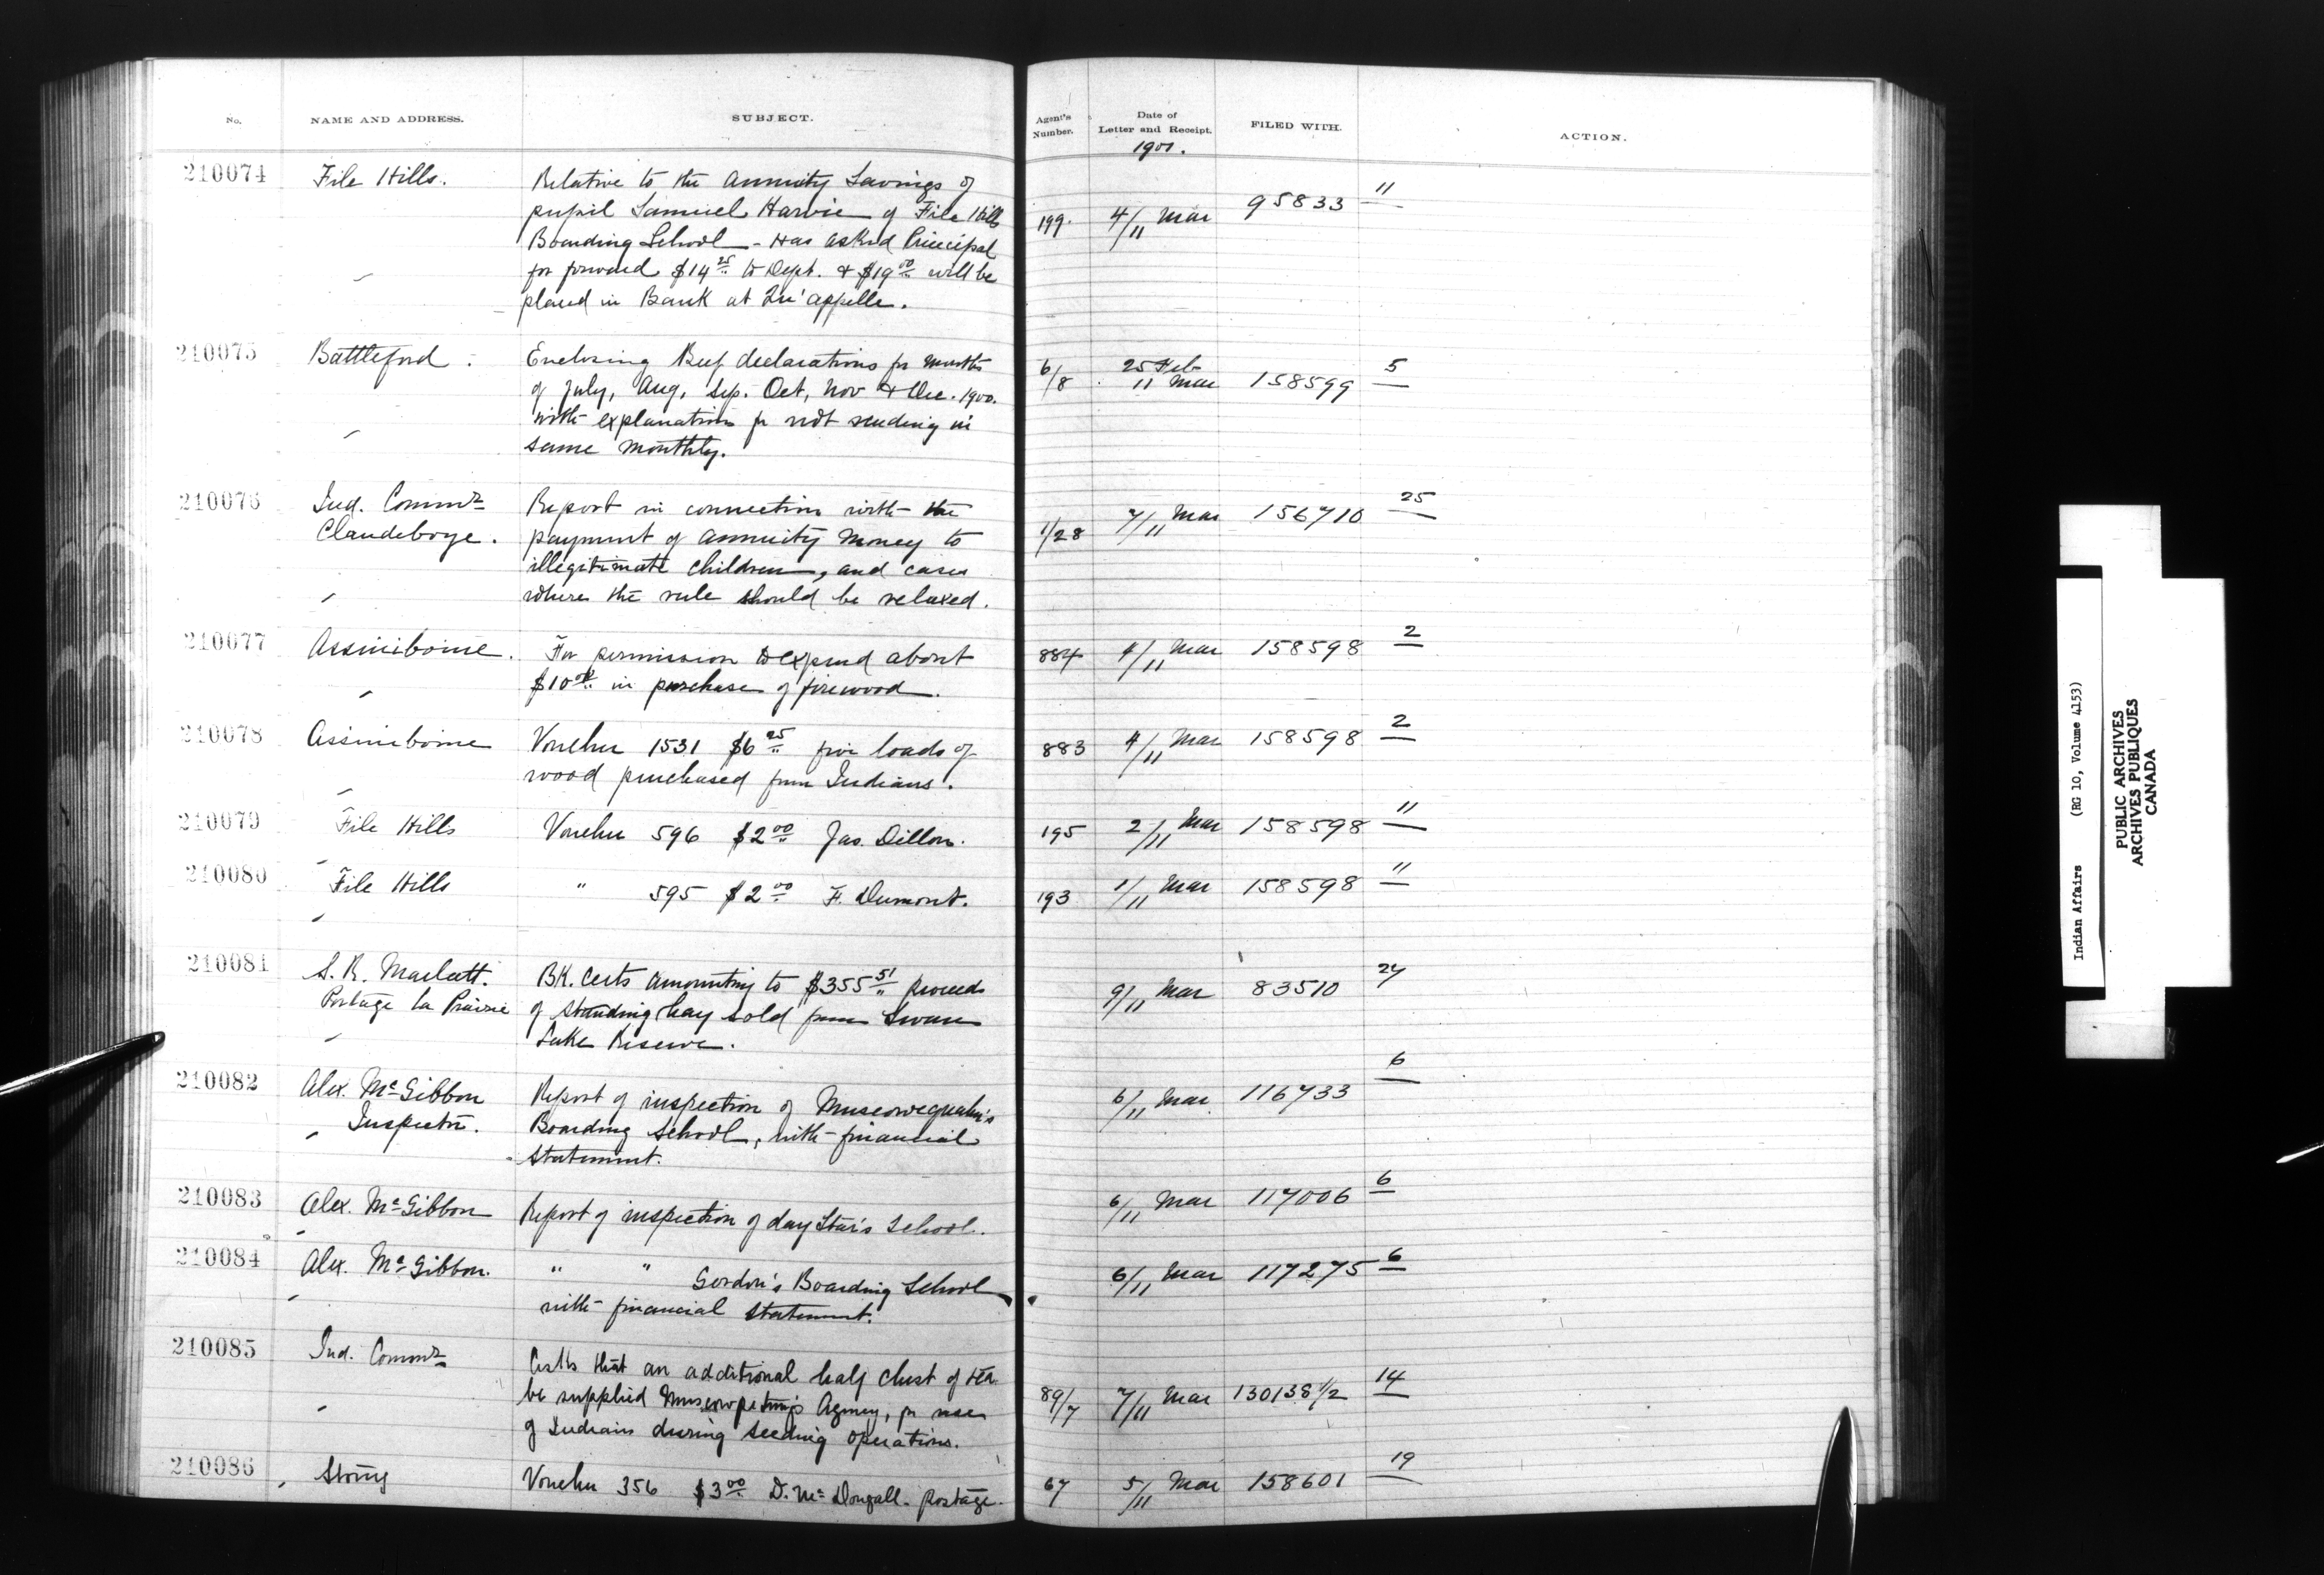 No. NAME AND ADDRESS. SUBJECT. Agent's Number. Date of Letter and Receipt. FILED WITH. ACTION.
1901.
210074 File Hills. Relative to the Annuity Savings of
pupil Samuel Harvie of File Hills 199. 4/11 Mar 95833 11
Boarding School - Has asked Principal
for forward $14 25 to Dept. & $19 00 will be
placed in Bank at Qu'appelle.
210075 Battleford. Enclosing Beef declarations for months 6/8 25 Feb 11 Mar 158599 5
of July, Aug, Sep. Oct, Nov & Dec. 1900.
with explanation for not sending in
same monthly.
210076 Ind. Commr Report in connection with the 1/28 7/11 Mar 156710 25
Clandeboye. payment of annuity money to
illegitimate children, and cases
where the rule should be relaxed.
210077 Assiniboine. For permission to expend about 884 4/11 Mar 158598 2
$10 00 in purchase of firewood.
210078 Assiniboine Voucher 1531 $6 25 five loads of 883 4/11 Mar 158598 2
wood purchased from Indians.
210079 File Hills Voucher 596 $2 00 Jas. Dillon. 195 2/11 Mar 158598 11
210080 File Hills " 595 $2 00 F. Dumont. 193 1/11 Mar 158598 11
210081 S. R. Marlatt. BK. Certs amounting to $355 51 proceeds 9/11 Mar 83510 24
Portage la Prairie of standing hay sold from Swan
Lake Reserve.
210082 Alex. McGibbon Report of inspection of Muscowequahn's 6/11 Mar 116733 6
Inspector. Boarding School, with financial
Statement.
210083 Alex. McGibbon Report of inspection of day Star's School. 6/11 Mar 117006 6
210084 Alex. McGibbon. " " Gordon's Boarding School 6/11 Mar 117275 6
with financial statement.
210085 Ind. Commr Asks that an additional half chest of tea
be supplied Muscowpetung's Agency, for use 89/7 7/11 Mar 130138 1/2 14
of Indians during seeding operations.
210086 Stony Voucher 356 $3 00 D. McDougall. postage. 67 5/11 Mar 158601 19
Indian Affairs (RG 10, Volume 4153)
PUBLIC ARCHIVES
ARCHIVES PUBLIQUES
CANADA